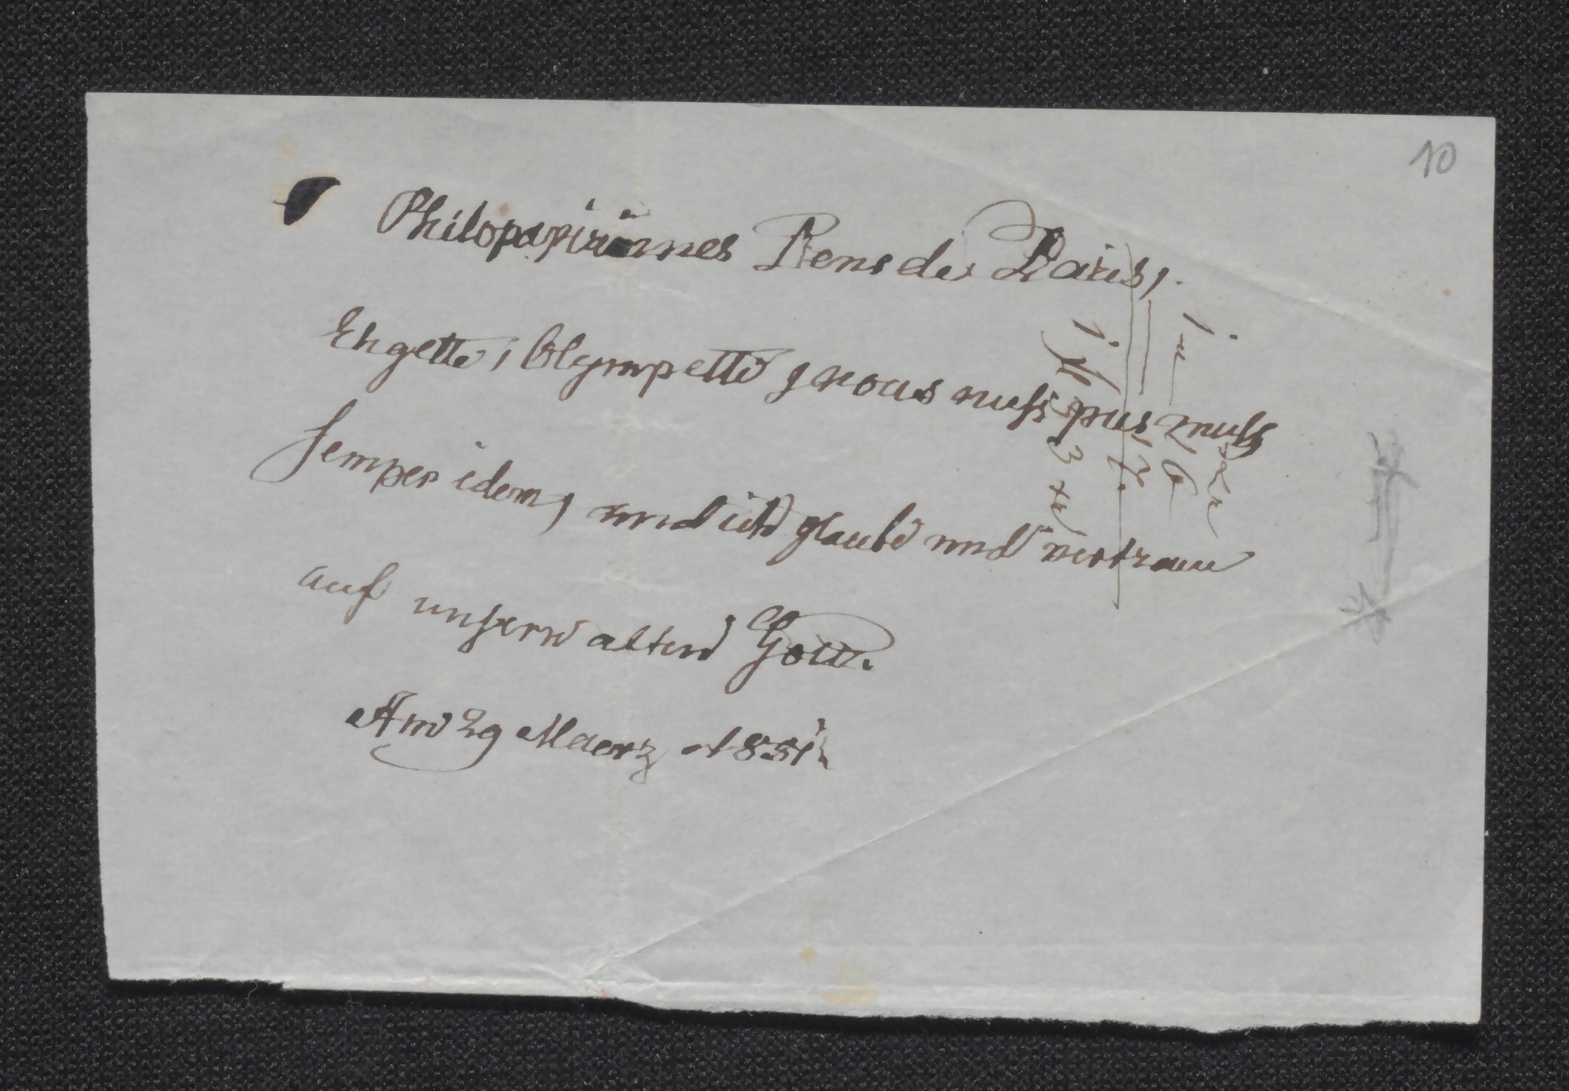 10
Philopapirömnes Rens de Paris,.
Engette, Olympette, nous muss pus muss
semper idem, und ich glaube und vertraue
auf unsern alten Gott.
Am 29 Maerz 1851